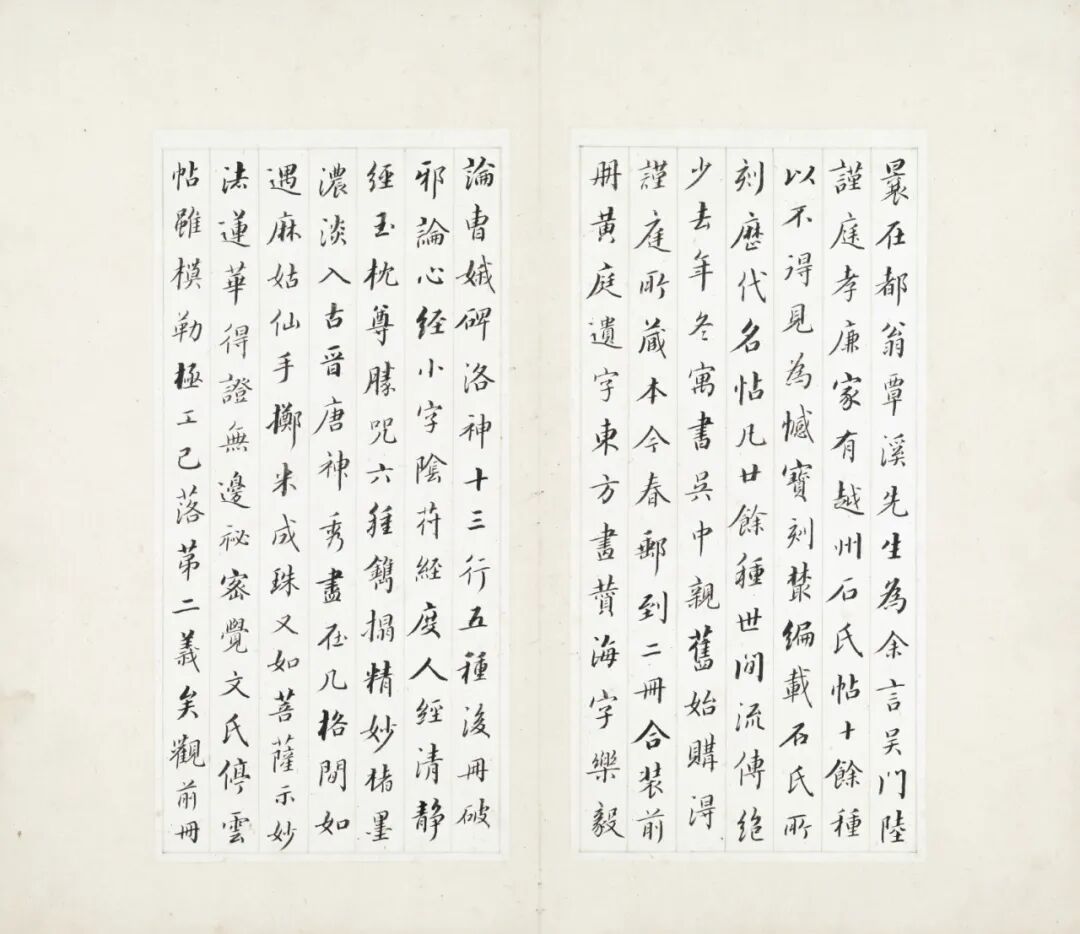 曩在都翁覃溪先生為余言吴門陸
謹庭孝廉家有越州石氏帖十餘種
以不得見為憾寶刻叢編載石氏所
刻歷代名帖凡廿餘種世間流傳絕
少去年冬寓書吳中親舊始購得
謹庭所藏本今春郵到二冊合装前
冊黃庭遺字東方畫贊海字樂毅
論曹娥碑洛神十三行五種後冊破
邪論心經小字陰符經度人經清靜
經玉枕尊勝咒六種鐫搨精妙楮墨
濃淡入古晉唐神秀盡在几格間如
遇麻姑仙手擲米成珠又如菩薩示妙
法蓮華得證無邊祕密覺文氏停雲
帖雖模勒極工已落第二義矣觀前冊